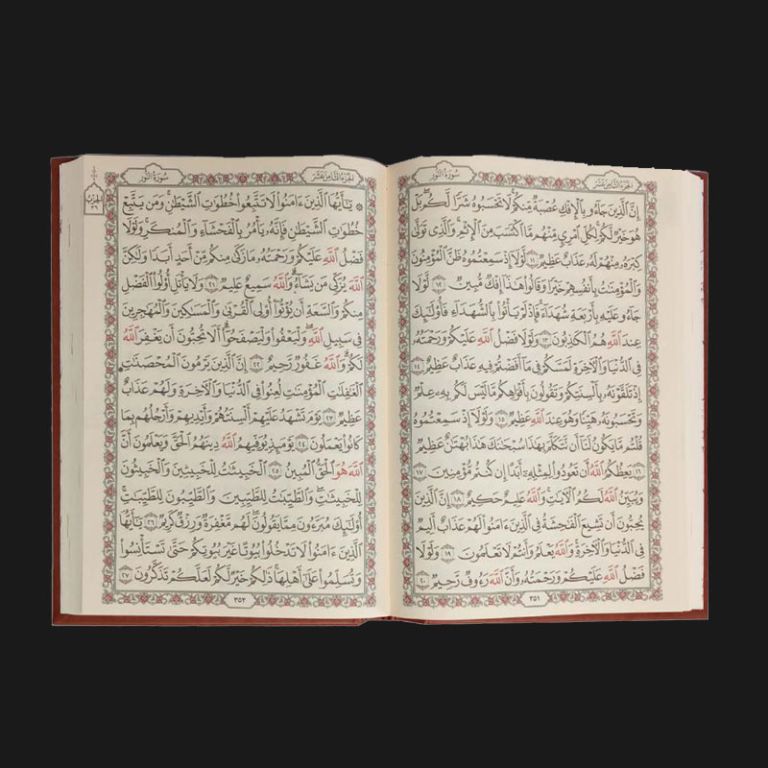 الجزء الثامن عشر
سورة النور
إِنَّ ٱلَّذِينَ جَآءُو بِٱلْإِفْكِ عُصْبَةٌ مِّنكُمْ لَا تَحْسَبُوهُ شَرًّا لَّكُم بَلْ
هُوَ خَيْرٌ لَّكُمْ لِكُلِّ ٱمْرِئٍ مِّنْهُم مَّا ٱكْتَسَبَ مِنَ ٱلْإِثْمِ وَٱلَّذِى تَوَلَّىٰ
كِبْرَهُۥ مِنْهُمْ لَهُۥ عَذَابٌ عَظِيمٌ ١١ لَّوْلَآ إِذْ سَمِعْتُمُوهُ ظَنَّ ٱلْمُؤْمِنُونَ
وَٱلْمُؤْمِنَٰتُ بِأَنفُسِهِمْ خَيْرًا وَقَالُوا۟ هَٰذَآ إِفْكٌ مُّبِينٌ ١٢ لَّوْلَا
جَآءُو عَلَيْهِ بِأَرْبَعَةِ شُهَدَآءَ فَإِذْ لَمْ يَأْتُوا۟ بِٱلشُّهَدَآءِ فَأُو۟لَٰٓئِكَ
عِندَ ٱللَّهِ هُمُ ٱلْكَٰذِبُونَ ١٣ وَلَوْلَا فَضْلُ ٱللَّهِ عَلَيْكُمْ وَرَحْمَتُهُۥ
فِى ٱلدُّنْيَا وَٱلْءَاخِرَةِ لَمَسَّكُمْ فِى مَآ أَفَضْتُمْ فِيهِ عَذَابٌ عَظِيمٌ ١٤
إِذْ تَلَقَّوْنَهُۥ بِأَلْسِنَتِكُمْ وَتَقُولُونَ بِأَفْوَاهِكُم مَّا لَيْسَ لَكُم بِهِۦ عِلْمٌ
وَتَحْسَبُونَهُۥ هَيِّنًا وَهُوَ عِندَ ٱللَّهِ عَظِيمٌ ١٥ وَلَوْلَآ إِذْ سَمِعْتُمُوهُ
قُلْتُم مَّا يَكُونُ لَنَآ أَن نَّتَكَلَّمَ بِهَٰذَا سُبْحَٰنَكَ هَٰذَا بُهْتَٰنٌ عَظِيمٌ
١٦ يَعِظُكُمُ ٱللَّهُ أَن تَعُودُوا۟ لِمِثْلِهِۦٓ أَبَدًا إِن كُنتُم مُّؤْمِنِينَ ١٧
وَيُبَيِّنُ ٱللَّهُ لَكُمُ ٱلْءَايَٰتِ وَٱللَّهُ عَلِيمٌ حَكِيمٌ ١٨ إِنَّ ٱلَّذِينَ
يُحِبُّونَ أَن تَشِيعَ ٱلْفَٰحِشَةُ فِى ٱلَّذِينَ ءَامَنُوا۟ لَهُمْ عَذَابٌ أَلِيمٌ
فِى ٱلدُّنْيَا وَٱلْءَاخِرَةِ وَٱللَّهُ يَعْلَمُ وَأَنتُمْ لَا تَعْلَمُونَ ١٩ وَلَوْلَا
فَضْلُ ٱللَّهِ عَلَيْكُمْ وَرَحْمَتُهُۥ وَأَنَّ ٱللَّهَ رَءُوفٌ رَّحِيمٌ ٢٠
٣٥١
الجزء الثامن عشر
سورة النور
۞ يَٰٓأَيُّهَا ٱلَّذِينَ ءَامَنُوا۟ لَا تَتَّبِعُوا۟ خُطُوَٰتِ ٱلشَّيْطَٰنِ وَمَن يَتَّبِعْ
خُطُوَٰتِ ٱلشَّيْطَٰنِ فَإِنَّهُۥ يَأْمُرُ بِٱلْفَحْشَآءِ وَٱلْمُنكَرِ وَلَوْلَا
فَضْلُ ٱللَّهِ عَلَيْكُمْ وَرَحْمَتُهُۥ مَا زَكَىٰ مِنكُم مِّنْ أَحَدٍ أَبَدًا وَلَٰكِنَّ
ٱللَّهَ يُزَكِّى مَن يَشَآءُ وَٱللَّهُ سَمِيعٌ عَلِيمٌ ٢١ وَلَا يَأْتَلِ أُو۟لُوا۟ ٱلْفَضْلِ
مِنكُمْ وَٱلسَّعَةِ أَن يُؤْتُوٓا۟ أُو۟لِى ٱلْقُرْبَىٰ وَٱلْمَسَٰكِينَ وَٱلْمُهَٰجِرِينَ
فِى سَبِيلِ ٱللَّهِ وَلْيَعْفُوا۟ وَلْيَصْفَحُوٓا۟ أَلَا تُحِبُّونَ أَن يَغْفِرَ ٱللَّهُ
لَكُمْ وَٱللَّهُ غَفُورٌ رَّحِيمٌ ٢٢ إِنَّ ٱلَّذِينَ يَرْمُونَ ٱلْمُحْصَنَٰتِ
ٱلْغَٰفِلَٰتِ ٱلْمُؤْمِنَٰتِ لُعِنُوا۟ فِى ٱلدُّنْيَا وَٱلْءَاخِرَةِ وَلَهُمْ عَذَابٌ
عَظِيمٌ ٢٣ يَوْمَ تَشْهَدُ عَلَيْهِمْ أَلْسِنَتُهُمْ وَأَيْدِيهِمْ وَأَرْجُلُهُم بِمَا
كَانُوا۟ يَعْمَلُونَ ٢٤ يَوْمَئِذٍ يُوَفِّيهِمُ ٱللَّهُ دِينَهُمُ ٱلْحَقَّ وَيَعْلَمُونَ أَنَّ
ٱللَّهَ هُوَ ٱلْحَقُّ ٱلْمُبِينُ ٢٥ ٱلْخَبِيثَٰتُ لِلْخَبِيثِينَ وَٱلْخَبِيثُونَ
لِلْخَبِيثَٰتِ وَٱلطَّيِّبَٰتُ لِلطَّيِّبِينَ وَٱلطَّيِّبُونَ لِلطَّيِّبَٰتِ
أُو۟لَٰٓئِكَ مُبَرَّءُونَ مِمَّا يَقُولُونَ لَهُم مَّغْفِرَةٌ وَرِزْقٌ كَرِيمٌ ٢٦ يَٰٓأَيُّهَا
ٱلَّذِينَ ءَامَنُوا۟ لَا تَدْخُلُوا۟ بُيُوتًا غَيْرَ بُيُوتِكُمْ حَتَّىٰ تَسْتَأْنِسُوا۟
وَتُسَلِّمُوا۟ عَلَىٰٓ أَهْلِهَا ذَٰلِكُمْ خَيْرٌ لَّكُمْ لَعَلَّكُمْ تَذَكَّرُونَ ٢٧
٣٥٢